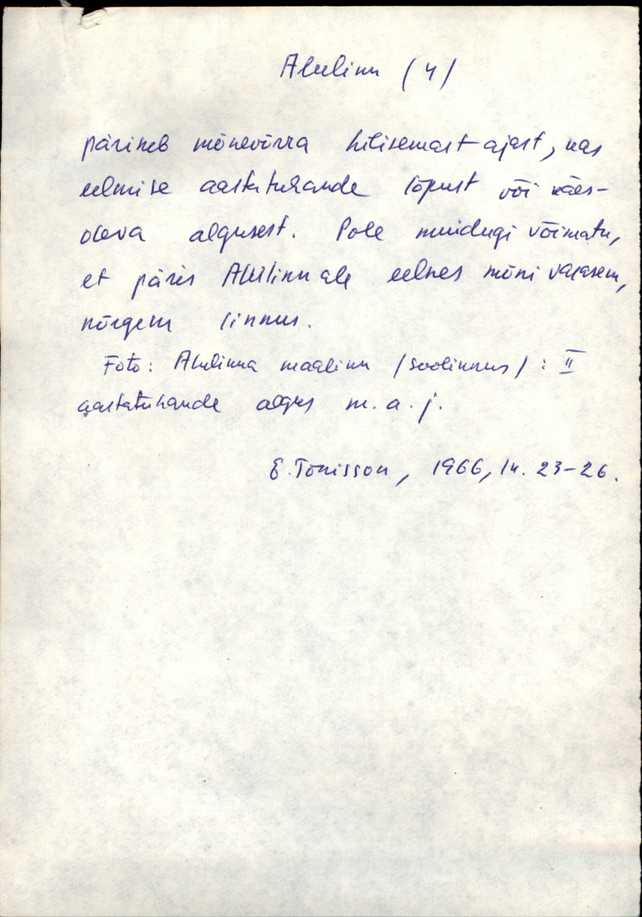 Alulinn (4)
pärineb mõnevõrra hilisemast ajast, kas
eelmise aastatuhande lõpust või käes-
oleva algusest. Pole muidugi võimatu,
et päris Alulinnale eelnes mõni varasem,
nõrgem linnus.
Foto: Alulinna maalinn (soolinnus): II
aastatuhande algus m.a.j.
E. Tõnisson, 1966, lk. 23-26.